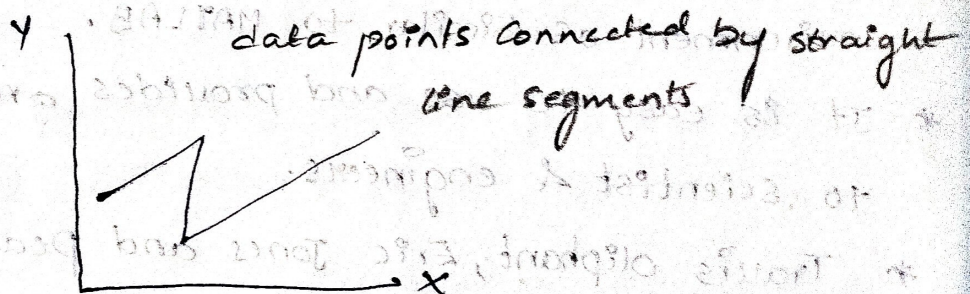 Y data points connected by straight
line segments
X